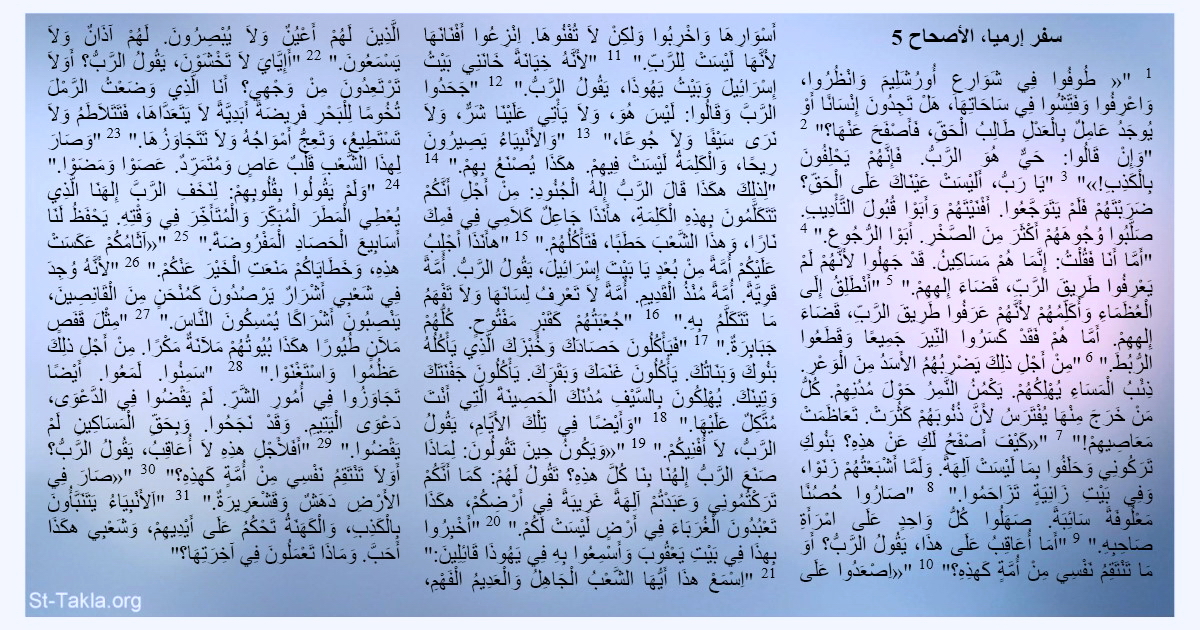 سفر إرميا، الأصحاح 5
1 "« طُوفُوا فِي شَوَارِعِ أُورُشَلِيمَ وَانْظُرُوا،
وَاعْرِفُوا وَفَتِّشُوا فِي سَاحَاتِهَا، هَلْ تَجِدُونَ إِنْسَانًا أَوْ
يُوجَدُ عَامِلٌ بِالْعَدْلِ طَالِبُ الْحَقِّ، فَأَصْفَحَ عَنْهَا؟" 2
"وَإِنْ قَالُوا: حَيٌّ هُوَ الرَّبُّ. فَإِنَّهُمْ يَحْلِفُونَ
بِالْكَذِبِ!»" 3 "يَا رَبُّ، أَلَيْسَتْ عَيْنَاكَ عَلَى الْحَقِّ؟
ضَرَبْتَهُمْ فَلَمْ يَتَوَجَّعُوا. أَفْنَيْتَهُمْ وَأَبَوْا قُبُولَ التَّأْدِيبِ.
صَلَّبُوا وُجُوهَهُمْ أَكْثَرَ مِنَ الصَّخْرِ. أَبَوْا الرُّجُوعَ." 4
"أَمَّا أَنَا فَقُلْتُ: إِنَّمَا هُمْ مَسَاكِينُ. قَدْ جَهِلُوا لأَنَّهُمْ لَمْ
يَعْرِفُوا طَرِيقَ الرَّبِّ، قَضَاءَ إِلهِهِمْ." 5 "أَنْطَلِقُ إِلَى
الْعُظَمَاءِ وَأُكَلِّمُهُمْ لأَنَّهُمْ عَرَفُوا طَرِيقَ الرَّبِّ، قَضَاءَ
إِلهِهِمْ. أَمَّا هُمْ فَقَدْ كَسَرُوا النِّيرَ جَمِيعًا وَقَطَعُوا
الرُّبُطَ." 6 "مِنْ أَجْلِ ذلِكَ يَضْرِبُهُمُ الأَسَدُ مِنَ الْوَعْرِ.
ذِئْبُ الْمَسَاءِ يُهْلِكُهُمْ. يَكْمُنُ النَّمِرُ حَوْلَ مُدُنِهِمْ. كُلُّ
مَنْ خَرَجَ مِنْهَا يُفْتَرَسُ لأَنَّ ذُنُوبَهُمْ كَثُرَتْ. تَعَاظَمَتْ
مَعَاصِيهِمْ!" 7 "«كَيْفَ أَصْفَحُ لَكِ عَنْ هذِهِ؟ بَنُوكِ
تَرَكُونِي وَحَلَفُوا بِمَا لَيْسَتْ آلِهَةً. وَلَمَّا أَشْبَعْتُهُمْ زَنَوْا،
وَفِي بَيْتِ زَانِيَةٍ تَزَاحَمُوا." 8 "صَارُوا حُصُنًا
مَعْلُوفَةً سَائِبَةً. صَهَلُوا كُلُّ وَاحِدٍ عَلَى امْرَأَةِ
صَاحِبِهِ." 9 "أَمَا أُعَاقِبُ عَلَى هذَا، يَقُولُ الرَّبُّ؟ أَوَ
مَا تَنْتَقِمُ نَفْسِي مِنْ أُمَّةٍ كَهذِهِ؟" 10 "«اِصْعَدُوا عَلَى
أَسْوَارِهَا وَاخْرِبُوا وَلكِنْ لاَ تُفْنُوهَا. اِنْزِعُوا أَفْنَانَهَا
لأَنَّهَا لَيْسَتْ لِلرَّبِّ." 11 "لأَنَّهُ خِيَانَةً خَانَنِي بَيْتُ
إِسْرَائِيلَ وَبَيْتُ يَهُوذَا، يَقُولُ الرَّبُّ." 12 "جَحَدُوا
الرَّبَّ وَقَالُوا: لَيْسَ هُوَ، وَلاَ يَأْتِي عَلَيْنَا شَرٌّ، وَلاَ
نَرَى سَيْفًا وَلاَ جُوعًا،" 13 "وَالأَنْبِيَاءُ يَصِيرُونَ
رِيحًا، وَالْكَلِمَةُ لَيْسَتْ فِيهِمْ. هكَذَا يُصْنَعُ بِهِمْ." 14
"لِذلِكَ هكَذَا قَالَ الرَّبُّ إِلهُ الْجُنُودِ: مِنْ أَجْلِ أَنَّكُمْ
تَتَكَلَّمُونَ بِهذِهِ الْكَلِمَةِ، هأَنَذَا جَاعِلٌ كَلاَمِي فِي فَمِكَ
نَارًا، وَهذَا الشَّعْبَ حَطَبًا، فَتَأْكُلُهُمْ." 15 "هأَنَذَا أَجْلِبُ
عَلَيْكُمْ أُمَّةً مِنْ بُعْدٍ يَا بَيْتَ إِسْرَائِيلَ، يَقُولُ الرَّبُّ. أُمَّةً
قَوِيَّةً. أُمَّةً مُنْذُ الْقَدِيمِ. أُمَّةً لاَ تَعْرِفُ لِسَانَهَا وَلاَ تَفْهَمُ
مَا تَتَكَلَّمُ بِهِ." 16 "جُعْبَتُهُمْ كَقَبْرٍ مَفْتُوحٍ. كُلُّهُمْ
جَبَابِرَةٌ." 17 "فَيَأْكُلُونَ حَصَادَكَ وَخُبْزَكَ الَّذِي يَأْكُلُهُ
بَنُوكَ وَبَنَاتُكَ. يَأْكُلُونَ غَنَمَكَ وَبَقَرَكَ. يَأْكُلُونَ جَفْنَتَكَ
وَتِينَكَ. يُهْلِكُونَ بِالسَّيْفِ مُدُنَكَ الْحَصِينَةَ الَّتِي أَنْتَ
مُتَّكِلٌ عَلَيْهَا." 18 "وَأَيْضًا فِي تِلْكَ الأَيَّامِ، يَقُولُ
الرَّبُّ، لاَ أُفْنِيكُمْ." 19 "«وَيَكُونُ حِينَ تَقُولُونَ: لِمَاذَا
صَنَعَ الرَّبُّ إِلهُنَا بِنَا كُلَّ هذِهِ؟ تَقُولُ لَهُمْ: كَمَا أَنَّكُمْ
تَرَكْتُمُونِي وَعَبَدْتُمْ آلِهَةً غَرِيبَةً فِي أَرْضِكُمْ، هكَذَا
تَعْبُدُونَ الْغُرَبَاءَ فِي أَرْضٍ لَيْسَتْ لَكُمْ." 20 "أَخْبِرُوا
بِهذَا فِي بَيْتِ يَعْقُوبَ وَأَسْمِعُوا بِهِ فِي يَهُوذَا قَائِلِينَ:"
21 "اِسْمَعْ هذَا أَيُّهَا الشَّعْبُ الْجَاهِلُ وَالْعَدِيمُ الْفَهْمِ،
الَّذِينَ لَهُمْ أَعْيُنٌ وَلاَ يُبْصِرُونَ. لَهُمْ آذَانٌ وَلاَ
يَسْمَعُونَ." 22 "أَإِيَّايَ لاَ تَخْشَوْنَ، يَقُولُ الرَّبُّ؟ أَوَلاَ
تَرْتَعِدُونَ مِنْ وَجْهِي؟ أَنَا الَّذِي وَضَعْتُ الرَّمْلَ
تُخُومًا لِلْبَحْرِ فَرِيضَةً أَبَدِيَّةً لاَ يَتَعَدَّاهَا، فَتَتَلاَطَمُ وَلاَ
تَسْتَطِيعُ، وَتَعِجُّ أَمْوَاجُهُ وَلاَ تَتَجَاوَزُهَا." 23 "وَصَارَ
لِهذَا الشَّعْبِ قَلْبٌ عَاصٍ وَمُتَمَرِّدٌ. عَصَوْا وَمَضَوْا."
24 "وَلَمْ يَقُولُوا بِقُلُوبِهِمْ: لِنَخَفِ الرَّبَّ إِلهَنَا الَّذِي
يُعْطِي الْمَطَرَ الْمُبَكِّرَ وَالْمُتَأَخِّرَ فِي وَقْتِهِ. يَحْفَظُ لَنَا
أَسَابِيعَ الْحَصَادِ الْمَفْرُوضَةَ." 25 "«آثَامُكُمْ عَكَسَتْ
هذِهِ، وَخَطَايَاكُمْ مَنَعَتِ الْخَيْرَ عَنْكُمْ." 26 "لأَنَّهُ وُجِدَ
فِي شَعْبِي أَشْرَارٌ يَرْصُدُونَ كَمُنْحَنٍ مِنَ الْقَانِصِينَ،
يَنْصِبُونَ أَشْرَاكًا يُمْسِكُونَ النَّاسَ." 27 "مِثْلَ قَفَصٍ
مَلآنٍ طُيُورًا هكَذَا بُيُوتُهُمْ مَلآنَةٌ مَكْرًا. مِنْ أَجْلِ ذلِكَ
عَظُمُوا وَاسْتَغْنَوْا." 28 "سَمِنُوا. لَمَعُوا. أَيْضًا
تَجَاوَزُوا فِي أُمُورِ الشَّرِّ. لَمْ يَقْضُوا فِي الدَّعْوَى،
دَعْوَى الْيَتِيمِ. وَقَدْ نَجَحُوا. وَبِحَقِّ الْمَسَاكِينِ لَمْ
يَقْضُوا." 29 "أَفَلأَجْلِ هذِهِ لاَ أُعَاقِبُ، يَقُولُ الرَّبُّ؟
أَوَلاَ تَنْتَقِمُ نَفْسِي مِنْ أُمَّةٍ كَهذِهِ؟" 30 "«صَارَ فِي
الأَرْضِ دَهَشٌ وَقَشْعَرِيرَةٌ." 31 "اَلأَنْبِيَاءُ يَتَنَبَّأُونَ
بِالْكَذِبِ، وَالْكَهَنَةُ تَحْكُمُ عَلَى أَيْدِيهِمْ، وَشَعْبِي هكَذَا
أَحَبَّ. وَمَاذَا تَعْمَلُونَ فِي آخِرَتِهَا؟"
St-Takla.org